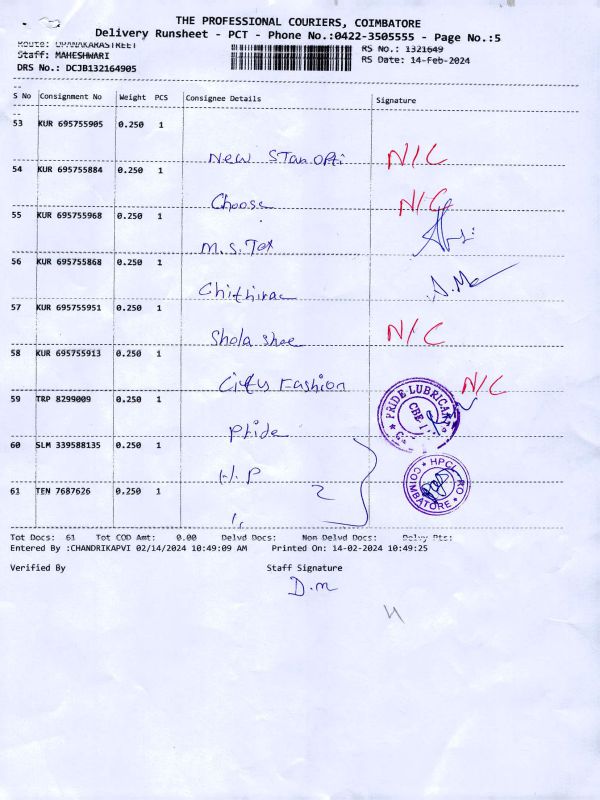 THE PROFESSIONAL COURIERS, COIMBATORE
Delivery Runsheet - PCT - Phone No.:0422-3505555 - Page No.:5
Route: UPANAKARASTREET
RS No.: 1321649
Staff: MAHESHWARI
RS Date: 14-Feb-2024
DRS No.: DCJB132164905
S No Consignment No Weight PCS Consignee Details Signature
53 KUR 695755905 0.250 1
New STan opti N/C
54 KUR 695755884 0.250 1
Choose N/C
55 KUR 695755968 0.250 1
M.S. Tex
56 KUR 695755868 0.250 1
Chithirae
57 KUR 695755951 0.250 1
Shola shoe N/C
58 KUR 695755913 0.250 1
City Fashion N/C
59 TRP 8299009 0.250 1
Pride PRIDE LUBRICANTS CBE
60 SLM 339588135 0.250 1
H.P 2 HPCL RO COIMBATORE
61 TEN 7687626 0.250 1
Tot Docs: 61 Tot COD Amt: 0.00 Delvd Docs: Non Delvd Docs: Delvy Pts:
Entered By :CHANDRIKAPVI 02/14/2024 10:49:09 AM Printed On: 14-02-2024 10:49:25
Verified By Staff Signature
D.m